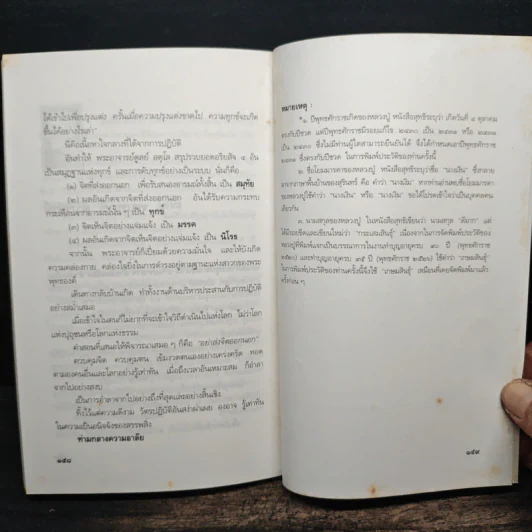 ได้เข้าไปเพื่อปรุงแต่ง ครั้นเมื่อความปรุงแต่งขาดไป ความทุกข์จะเกิด
ขึ้นได้อย่างไรเล่า"
นี่คือเนื้อหาใจกลางที่ได้จากการปฏิบัติ
อันทำให้ พระอาจารย์ดูลย์ อตุโล สรุปรวบยอดอริยสัจ ๔ อัน
เป็นสมุฏฐานแห่งทุกข์ และการดับทุกข์อย่างเป็นระบบ นั่นก็คือ
(๑) จิตที่ส่งออกนอก เพื่อรับสนองอารมณ์ทั้งสิ้น เป็น สมุทัย
(๒) ผลอันเกิดจากจิตที่ส่งออกนอก อันได้รับความกระทบ
กระเทือนจากอารมณ์นั้น ๆ เป็น ทุกข์
(๓) จิตเห็นจิตอย่างแจ่มแจ้ง เป็น มรรค
(๔) ผลอันเกิดจากจิตเห็นจิตอย่างแจ่มแจ้ง เป็น นิโรธ
จากนั้น พระอาจารย์ก็เปี่ยมด้วยความมั่นใจ และให้บังเกิด
ความคล่องกาย คล่องใจยิ่งในการดำรงอยู่ตามฐานะแห่งสาวกของพระ
พุทธองค์
เดินทางกลับบ้านเกิด ทำทั้งงานด้านบริหารประสานกับการปฏิบัติ
อย่างสม่ำเสมอ
เมื่อเข้าใจในตนก็ไม่ยากที่จะเข้าใจวิถีดำเนินไปแห่งโลก ไม่ว่าโลก
แห่งปุถุชนหรือโลกแห่งธรรม
คำสอนที่เสนอให้พิจารณาเสมอ ๆ ก็คือ "อย่าส่งจิตออกนอก"
ควบคุมจิต ควบคุมตน เข้มงวดตนเองอย่างเคร่งครัด ทอด
ตามองคนอื่นและโลกอย่างรู้เท่าทัน เมื่อถึงเวลาอันเหมาะสม ก็อำลา
จากไปอย่างสงบ
เป็นการอำลาจากไปอย่างถึงที่สุดและอย่างสิ้นเชิง
ทิ้งไว้แต่ความดีงาม วัตรปฏิบัติอันสง่าผ่าเผย องอาจ รู้เท่าทัน
ในความเป็นอนิจจังของสรรพสิ่ง
ท่ามกลางความอาลัย
๑๕๘
หมายเหตุ :
๑. ปีพุทธศักราชเกิดของหลวงปู่ หนังสือสุทธิระบุว่า เกิดวันที่ ๔ ตุลาคม
ตรงกับปีชวด แต่ปีพุทธศักราชมีรอยแก้ไข ๒๔๓๐ เป็น ๒๔๓๑ หรือ ๒๔๓๑
เป็น ๒๔๓๐ ซึ่งไม่มีท่านผู้ใดสามารถยืนยันได้ จึงได้กำหนดเอาปีพุทธศักราช ๒๔๓๑
ซึ่งตรงกับปีชวด ในการพิมพ์ประวัติของท่านครั้งนี้
๒. ชื่อโยมมารดาของหลวงปู่ หนังสือสุทธิระบุชื่อคือ "นางเงิม" ซึ่งกลาย
มาจากภาษาพื้นบ้านของสุรินทร์ คือ คำว่า "นางเงิม" หากท่านอ่านพบชื่อโยมมารดา
ของหลวงปู่ใช้คำว่า "นางเงิน" หรือ "นางเงิม" ขอได้โปรดเข้าใจว่าเป็นบุคคลคน
เดียวกัน
๓. นามสกุลของหลวงปู่ ในหนังสือสุทธิเขียนว่า นามสกุล "ดีมาก" แต่
ได้มีรอยขีดและเขียนใหม่ว่า "กระแสนสินธุ์" เนื่องจากในการพิมพ์หนังสือประวัติของ
หลวงปู่ที่พิมพ์แจกเป็นบรรณาการในงานทำบุญอายุครบ ๙๐ ปี (พุทธศักราช
๒๕๒๑) และงานทำบุญอายุครบ ๙๕ ปี (พุทธศักราช ๒๕๒๖) ใช้คำว่า "เกษมสินธุ์"
ในการพิมพ์ประวัติของท่านครั้งนี้จึงใช้ "เกษมสินธุ์" เหมือนที่เคยจัดพิมพ์มาแล้ว
ครั้งก่อน ๆ
๑๕๙